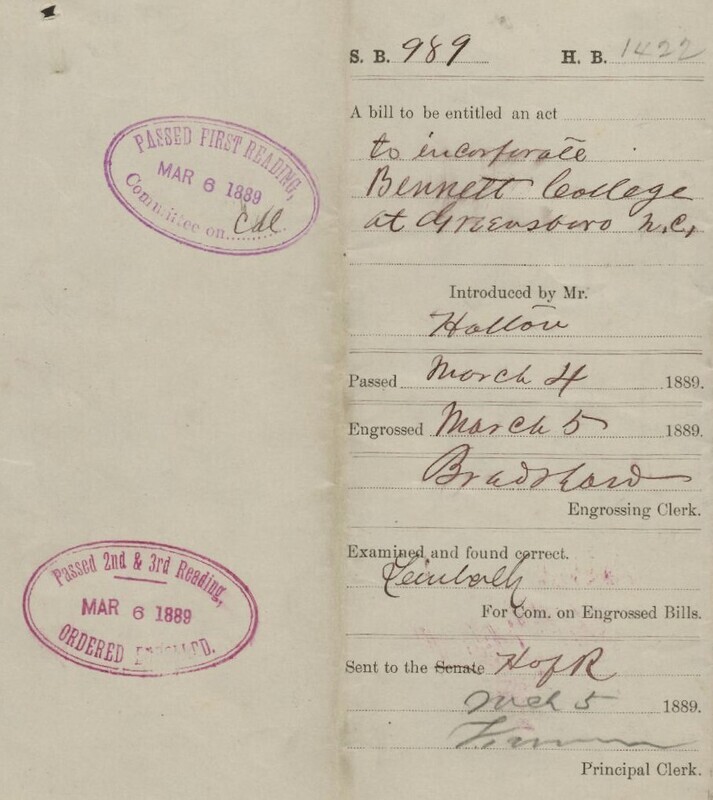 S. B. 989 H. B. 1422
A bill to be entitled an act
to incorporate
Bennett College
at Greensboro N.C,
Introduced by Mr.
Holton
Passed March 4 1889.
Engrossed March 5 1889.
Bradshaw
Engrossing Clerk.
Examined and found correct.
For Com. on Engrossed Bills.
Sent to the Senate H of R
Mch 5 1889.
Principal Clerk.
PASSED FIRST READING,
MAR 6 1889
Committee on Cal
Passed 2nd & 3rd Reading,
MAR 6 1889
ORDERED ENROLLED.